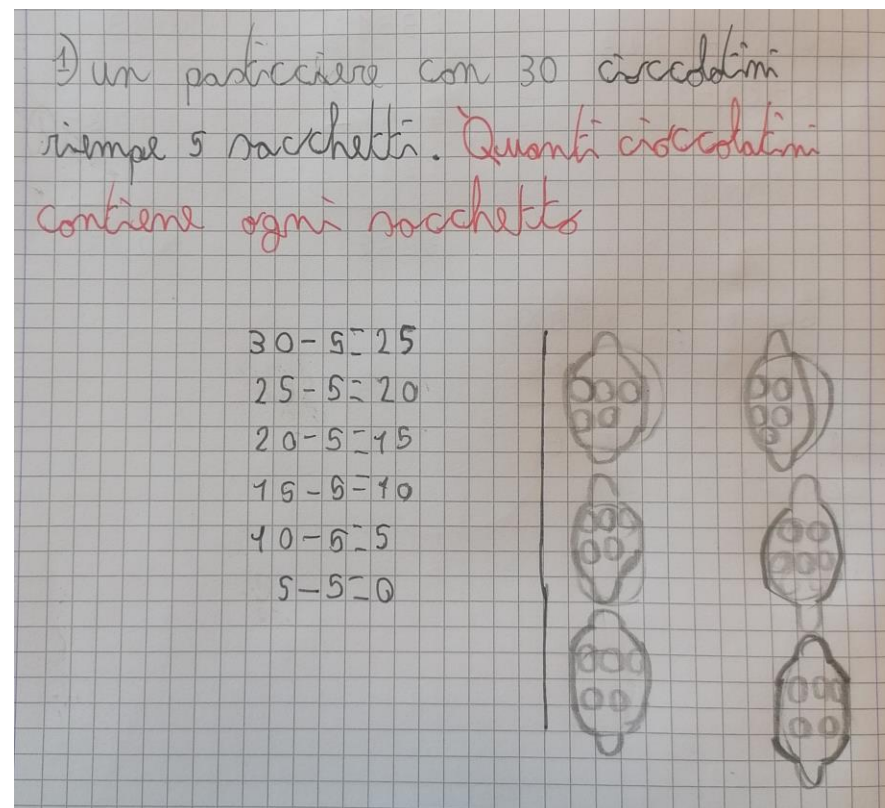 1) un pasticciere con 30 cioccolatini
riempe 5 sacchetti. Quanti cioccolatini
contiene ogni sacchetto
30-5=25
25-5=20
20-5=15
15-5=10
10-5=5
5-5=0